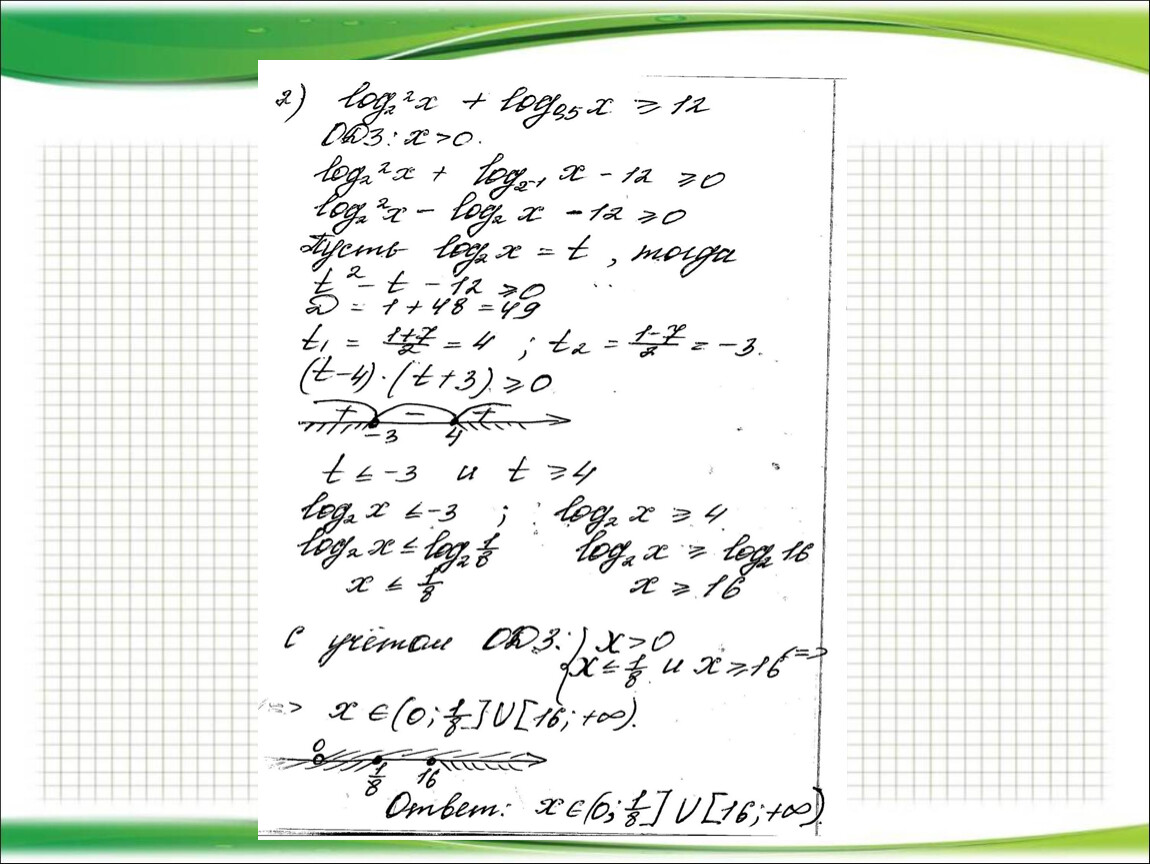 2) log₂²x + log₀,₅x ⩾ 12
ОДЗ: x>0.
log₂²x + log₂₋₁ x - 12 ⩾0
log₂²x - log₂ x - 12 ⩾0
Пусть log₂x = t, тогда
t² - t - 12 ⩾0
D = 1 + 48 = 49
t₁ = (1+7)/2 = 4 ; t₂ = (1-7)/2 = -3.
(t-4)·(t+3) ⩾0
+ - +
-3 4
t ⩽ -3 и t ⩾4
log₂x ⩽ -3 ; log₂x ⩾ 4
log₂x ⩽ log₂ 1/8 log₂x ⩾ log₂16
x ⩽ 1/8 x ⩾ 16
С учётом ОДЗ: { x>0
x ⩽ 1/8 и x ⩾ 16 <=>
<=> x ∈ (0; 1/8] U [16; +∞).
0 1/8 16
Ответ: x ∈ (0; 1/8] U [16; +∞).